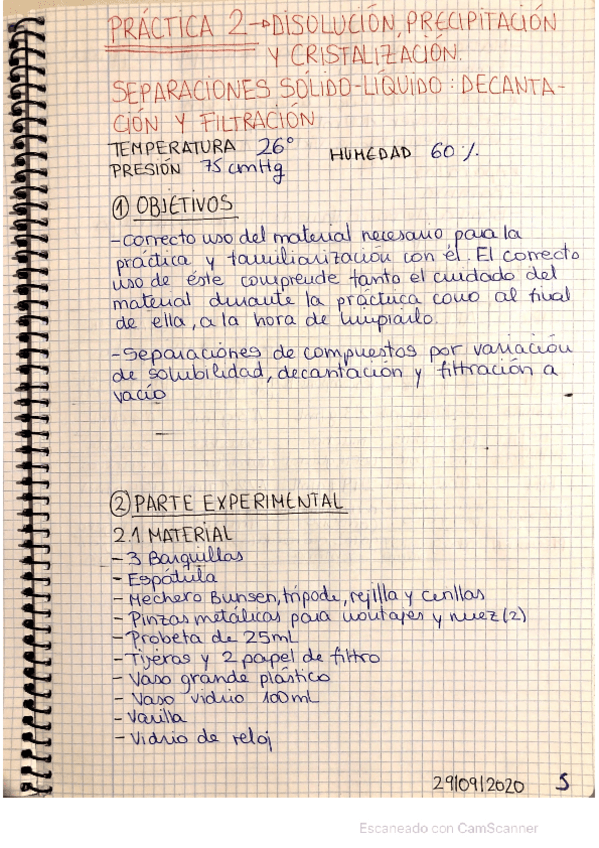 PRÁCTICA 2→DISOLUCIÓN, PRECIPITACIÓN
Y CRISTALIZACIÓN.
SEPARACIONES SÓLIDO-LÍQUIDO: DECANTA-
CIÓN Y FILTRACIÓN
TEMPERATURA 26° HUMEDAD 60%
PRESIÓN 75 cmHg
① OBJETIVOS
-Correcto uso del material necesario para la
práctica y familiarización con él. El correcto
uso de éste comprende tanto el cuidado del
material durante la práctica como al final
de ella, a la hora de limpiarlo.
-Separaciones de compuestos por variación
de solubilidad, decantación y filtración a
vacío
② PARTE EXPERIMENTAL
2.1 MATERIAL
- 3 Barquillas
- Espátula
- Mechero Bunsen, trípode, rejilla y cerillas
- Pinzas metálicas para montajes y nuez (2)
- Probeta de 25mL
- Tijeras y 2 papel de filtro
- Vaso grande plástico
- Vaso vidrio 100mL
- Varilla
- Vidrio de reloj
29/09/2020 5
Escaneado con CamScanner